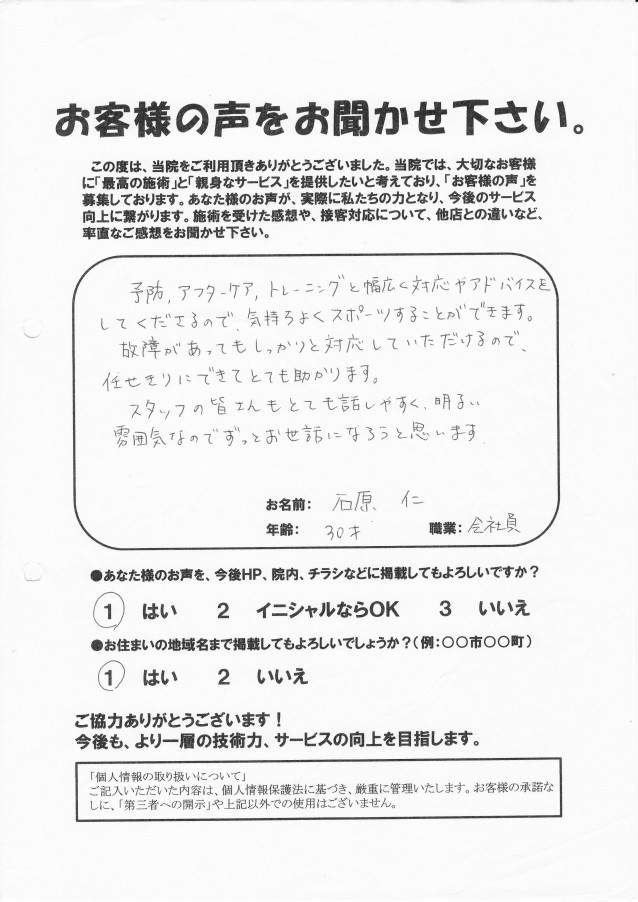 お客様の声をお聞かせ下さい。
この度は、当院をご利用頂きありがとうございました。当院では、大切なお客様
に「最高の施術」と「親身なサービス」を提供したいと考えており、「お客様の声」を
募集しております。あなた様のお声が、実際に私たちの力となり、今後のサービス
向上に繋がります。施術を受けた感想や、接客対応について、他店との違いなど、
率直なご感想をお聞かせ下さい。
予防,アフターケア,トレーニングと幅広く対応やアドバイスを
してくださるので、気持ちよくスポーツすることができます。
故障があってもしっかりと対応していただけるので、
任せきりにできてとても助かります。
スタッフの皆さんもとても話しやすく、明るい
雰囲気なのでずっとお世話になろうと思います
お名前: 石原 仁
年齢: 30才 職業: 会社員
●あなた様のお声を、今後HP、院内、チラシなどに掲載してもよろしいですか?
1 はい 2 イニシャルならOK 3 いいえ
●お住まいの地域名まで掲載してもよろしいでしょうか?(例:〇〇市〇〇町)
1 はい 2 いいえ
ご協力ありがとうございます!
今後も、より一層の技術力、サービスの向上を目指します。
「個人情報の取り扱いについて」
ご記入いただいた内容は、個人情報保護法に基づき、厳重に管理いたします。お客様の承諾な
しに、「第三者への開示」や上記以外での使用はございません。